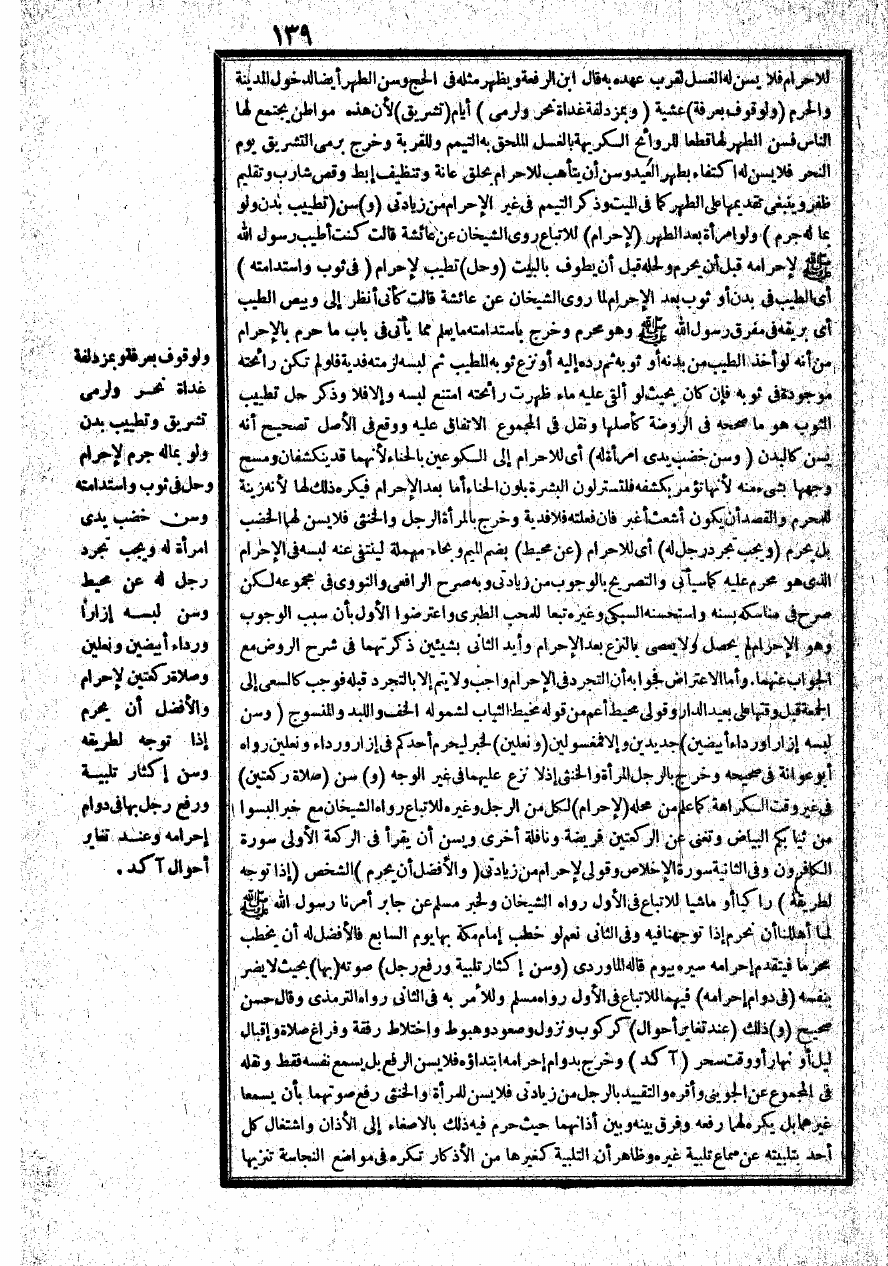 ١٣٩
للاحرام فلا يسن له الغسل لقرب عهده به قال ابن الرفعة ويظهر مثله فى الحج وسن الطهر أيضا لدخول المدينة
والحرم (ولوقوف بعرفة) عشية (وبمزدلفة غداة نحر ولرمى) أيام (تشريق) لأن هذه مواطن يجتمع لها
الناس فسن الطهر لها قطعا للروائح الكريهة بالغسل الملحق به التيمم وللقربة وخرج برمى التشريق يوم
النحر فلا يسن له اكتفاء بطهر العيد وسن أن يتأهب للاحرام بحلق عانة وتنظيف إبط وقص شارب وتقليم
ظفر وينبغى تقديمها على الطهر كما فى الميت وذكر التيمم فى غير الإحرام من زيادتى (و) سن (تطييب بدن ولو
بما له جرم) ولو امرأة بعد الطهر (لإحرام) للاتباع روى الشيخان عن عائشة قالت كنت أطيب رسول الله
ﷺ لإحرامه قبل أن يحرم ولحله قبل أن يطوف بالبيت (وحل) تطييب لإحرام (فى ثوب واستدامته)
أى الطيب فى بدن أو ثوب بعد الإحرام لما روى الشيخان عن عائشة قالت كأنى أنظر إلى وبيص الطيب
أى بريقه فى مفرق رسول الله ﷺ وهو محرم وخرج باستدامته ما يعلم مما يأتى فى باب ما حرم بالإحرام
من أنه لو أخذ الطيب من بدنه أو ثوبه ثم رده إليه أو نزع ثوبه المطيب ثم لبسه لزمته فدية فلو لم تكن رائحته
موجودة فى ثوبه فإن كان بحيث لو ألقى عليه ماء ظهرت رائحته امتنع لبسه وإلا فلا وذكر حل تطييب
الثوب هو ما صححه فى الروضة كأصلها ونقل فى المجموع الاتفاق عليه ووقع فى الأصل تصحيح أنه
يسن كالبدن (وسن خضب يدى امرأة له) أى للاحرام إلى الكوعين بالحناء لأنهما قد ينكشفان ومسح
وجهها بشىء منه لأنها تؤمر بكشفه فلتستر لون البشرة بلون الحناء أما بعد الإحرام فيكره ذلك لها لأنه زينة
للمحرم والقصد أن يكون أشعث أغبر فان فعلته فلا فدية وخرج بالمرأة الرجل والخنثى فلا يسن لهما الخضب
بل يحرم (ويجب تجرد رجل له) أى للاحرام (عن محيط) بضم الميم وبحاء مهملة لينتفى عنه لبسه فى الإحرام
الذى هو محرم عليه كما سيأتى والتصريح بالوجوب من زيادتى وبه صرح الرافعى والنووى فى مجموعه لكن
صرح فى مناسكه بسنه واستحسنه السبكى وغيره تبعا للمحب الطبرى واعترضوا الأول بأن سبب الوجوب
وهو الإحرام لم يحصل ولا يعصى بالنزع بعد الإحرام وأيد الثانى بشيئين ذكرتهما فى شرح الروض مع
الجواب عنهما. وأما الاعتراض فجوابه أن التجرد فى الإحرام واجب ولا يتم إلا بالتجرد قبله فوجب كالسعى إلى
الجمعة قبل وقتها على بعيد الدار وقولى محيط أعم من قوله مخيط الثياب لشموله الخف واللبد والمنسوج (وسن
لبسه إزارا ورداء أبيضين) جديدين وإلا فمغسولين (ونعلين) لخبر ليحرم أحدكم فى إزار ورداء ونعلين رواه
أبو عوانة فى صحيحه وخرج بالرجل المرأة والخنثى إذ لا نزع عليهما فى غير الوجه (و) سن (صلاة ركعتين)
فى غير وقت الكراهة كما علم من محله (لإحرام) لكل من الرجل وغيره للاتباع رواه الشيخان مع خبر البسوا
من ثيابكم البياض وتغنى عن الركعتين فريضة ونافلة أخرى ويسن أن يقرأ فى الركعة الأولى سورة
الكافرون وفى الثانية سورة الإخلاص وقولى لإحرام من زيادتى (والأفضل أن يحرم) الشخص (إذا توجه
لطريقه) راكبا أو ماشيا للاتباع فى الأول رواه الشيخان ولخبر مسلم عن جابر أمرنا رسول الله ﷺ
لما أهللنا أن نحرم إذا توجهنا فيه وفى الثانى نعم لو خطب إمام مكة بها يوم السابع فالأفضل له أن يخطب
محرما فيتقدم إحرامه سيره بيوم قاله الماوردى (وسن إكثار تلبية ورفع رجل) صوته (بها) بحيث لا يضر
بنفسه (فى دوام إحرامه) فيهما للاتباع فى الأول رواه مسلم وللأمر به فى الثانى رواه الترمذى وقال حسن
صحيح (و) ذلك (عند تغاير أحوال) كركوب ونزول وصعود وهبوط واختلاط رفقة وفراغ صلاة وإقبال
ليل أو نهار أو وقت سحر (آكد) وخرج بدوام إحرامه ابتداؤه فلا يسن الرفع بل يسمع نفسه فقط ونقله
فى المجموع عن الجوينى وأقره والتقييد بالرجل من زيادتى فلا يسن للمرأة والخنثى رفع صوتهما بأن يسمعا
غيرهما بل يكره لهما رفعه وفرق بينه وبين أذانهما حيث حرم فيه ذلك بالاصغاء إلى الأذان واشتغال كل
أحد بتلبيته عن سماع تلبية غيره وظاهر أن التلبية كغيرها من الأذكار تكره فى مواضع النجاسة تنزيها
ولوقوف بعرفة وبمزدلفة
غداة نحر ولرمى
تشريق وتطييب بدن
ولو بماله جرم لإحرام
وحل فى ثوب واستدامته
وسن خضب يدى
امرأة له ويجب تجرد
رجل له عن محيط
وسن لبسه إزاراً
ورداء أبيضين ونعلين
وصلاة ركعتين لإحرام
والأفضل أن يحرم
إذا توجه لطريقه
وسن إكثار تلبية
ورفع رجل بها فى دوام
إحرامه وعند تغاير
أحوال آكد.